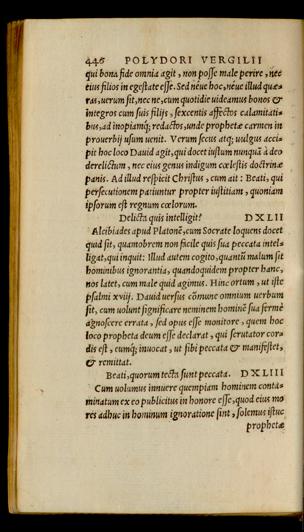 446 POLYDORI VERGILII
qui bona fide omnia agit, non posse male perire, nec
eius filios in egestate esse. Sed néue hoc, néue illud quæ-
ras, uerum sit, nec ne, cum quotidie uideamus bonos &
integros cum suis filijs, sexcentis affectos calamitati-
bus, ad inopiamq́; redactos, unde prophetæ carmen in
prouerbij usum uenit. Verum secus atq; uulgus acci-
pit hoc loco Dauid agit, qui docet iustum nunquā à deo
derelictum, nec eius genus indigum cœlestis doctrinæ
panis. Ad illud respicit Christus, cum ait: Beati, qui
persecutionem patiuntur propter iustitiam, quoniam
ipsorum est regnum cœlorum.
Delicta quis intelligit? DXLII
Alcibiades apud Platonē, cum Socrate loquens docet
quid sit, quamobrem non facile quis sua peccata intel-
ligat, qui inquit: Illud autem cogito, quantū malum sit
hominibus ignorantia, quandoquidem propter hanc,
nos latet, cum male quid agimus. Hinc ortum, ut iste
psalmi xviij. Dauid uersus cōmune omnium uerbum
sit, cum uolunt significare neminem hominē sua fermè
agnoscere errata, sed opus esse monitore, quem hoc
loco propheta deum esse declarat, qui scrutator cor-
dis est, eumq́; inuocat, ut sibi peccata & manifestet,
& remittat.
Beati, quorum tecta sunt peccata. DXLIII
Cum uolumus innuere quempiam hominem conta-
minatum ex eo publicitus in honore esse, quod eius mo
res adhuc in hominum ignoratione sint, solemus istuc
prophetæ